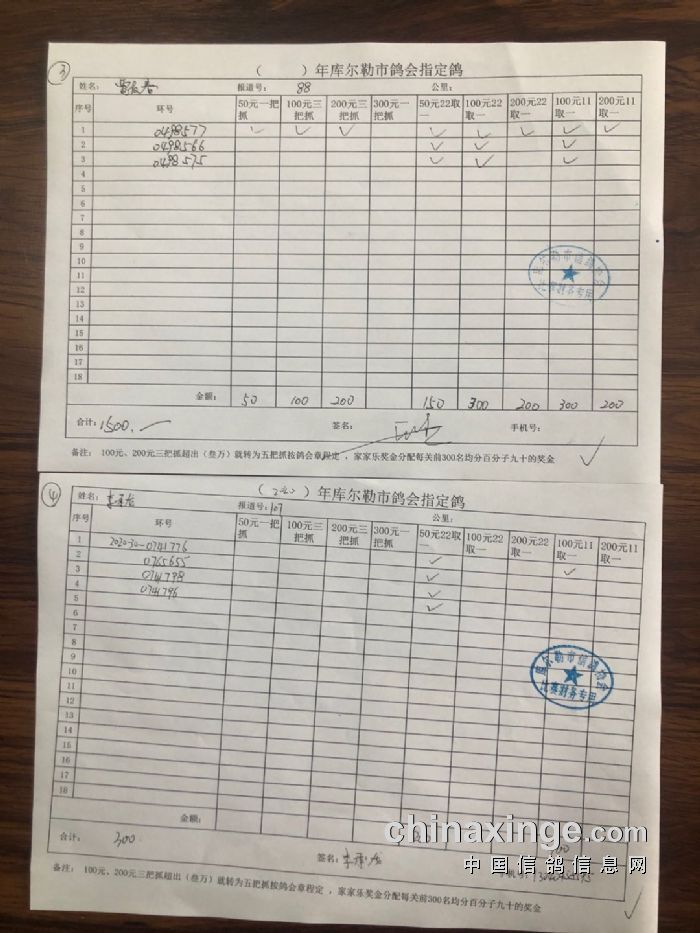 ③
（ ）年库尔勒市鸽会指定鸽
姓名： 报道号：88 公里：
序号 环号 50元一把抓 100元三把抓 200元三把抓 300元一把抓 50元22取一 100元22取一 200元22取一 100元11取一 200元11取一
1 0498577 ✓ ✓ ✓ ✓ ✓ ✓ ✓ ✓
2 0498566 ✓ ✓ ✓
3 0498575 ✓ ✓ ✓
4
5
6
7
8
9
10
11
12
13
14
15
16
17
18
库尔勒市信鸽协会
比赛财务专用
金额： 50 100 200 150 300 200 300 200
合计：1500.— 签名： 手机号：
备注： 100元、200元三把抓超出（叁万）就转为五把抓按鸽会章程定，家家乐奖金分配每关前300名均分百分子九十的奖金
✓
④
（ ）年库尔勒市鸽会指定鸽
姓名： 报道号：107 公里：
序号 环号 50元一把抓 100元三把抓 200元三把抓 300元一把抓 50元22取一 100元22取一 200元22取一 100元11取一 200元11取一
1 2020-30-0741776 ✓
2 0765655 ✓ ✓
3 0741798 ✓
4 0741796 ✓
5
6
7
8
9
10
11
12
13
14
15
16
17
18
库尔勒市信鸽协会
比赛财务专用
金额： 200 100
合计： 300 签名： 手机号：
备注： 100元、200元三把抓超出（叁万）就转为五把抓按鸽会章程定，家家乐奖金分配每关前300名均分百分子九十的奖金
✓
chinaxinge.com
中国信鸽信息网